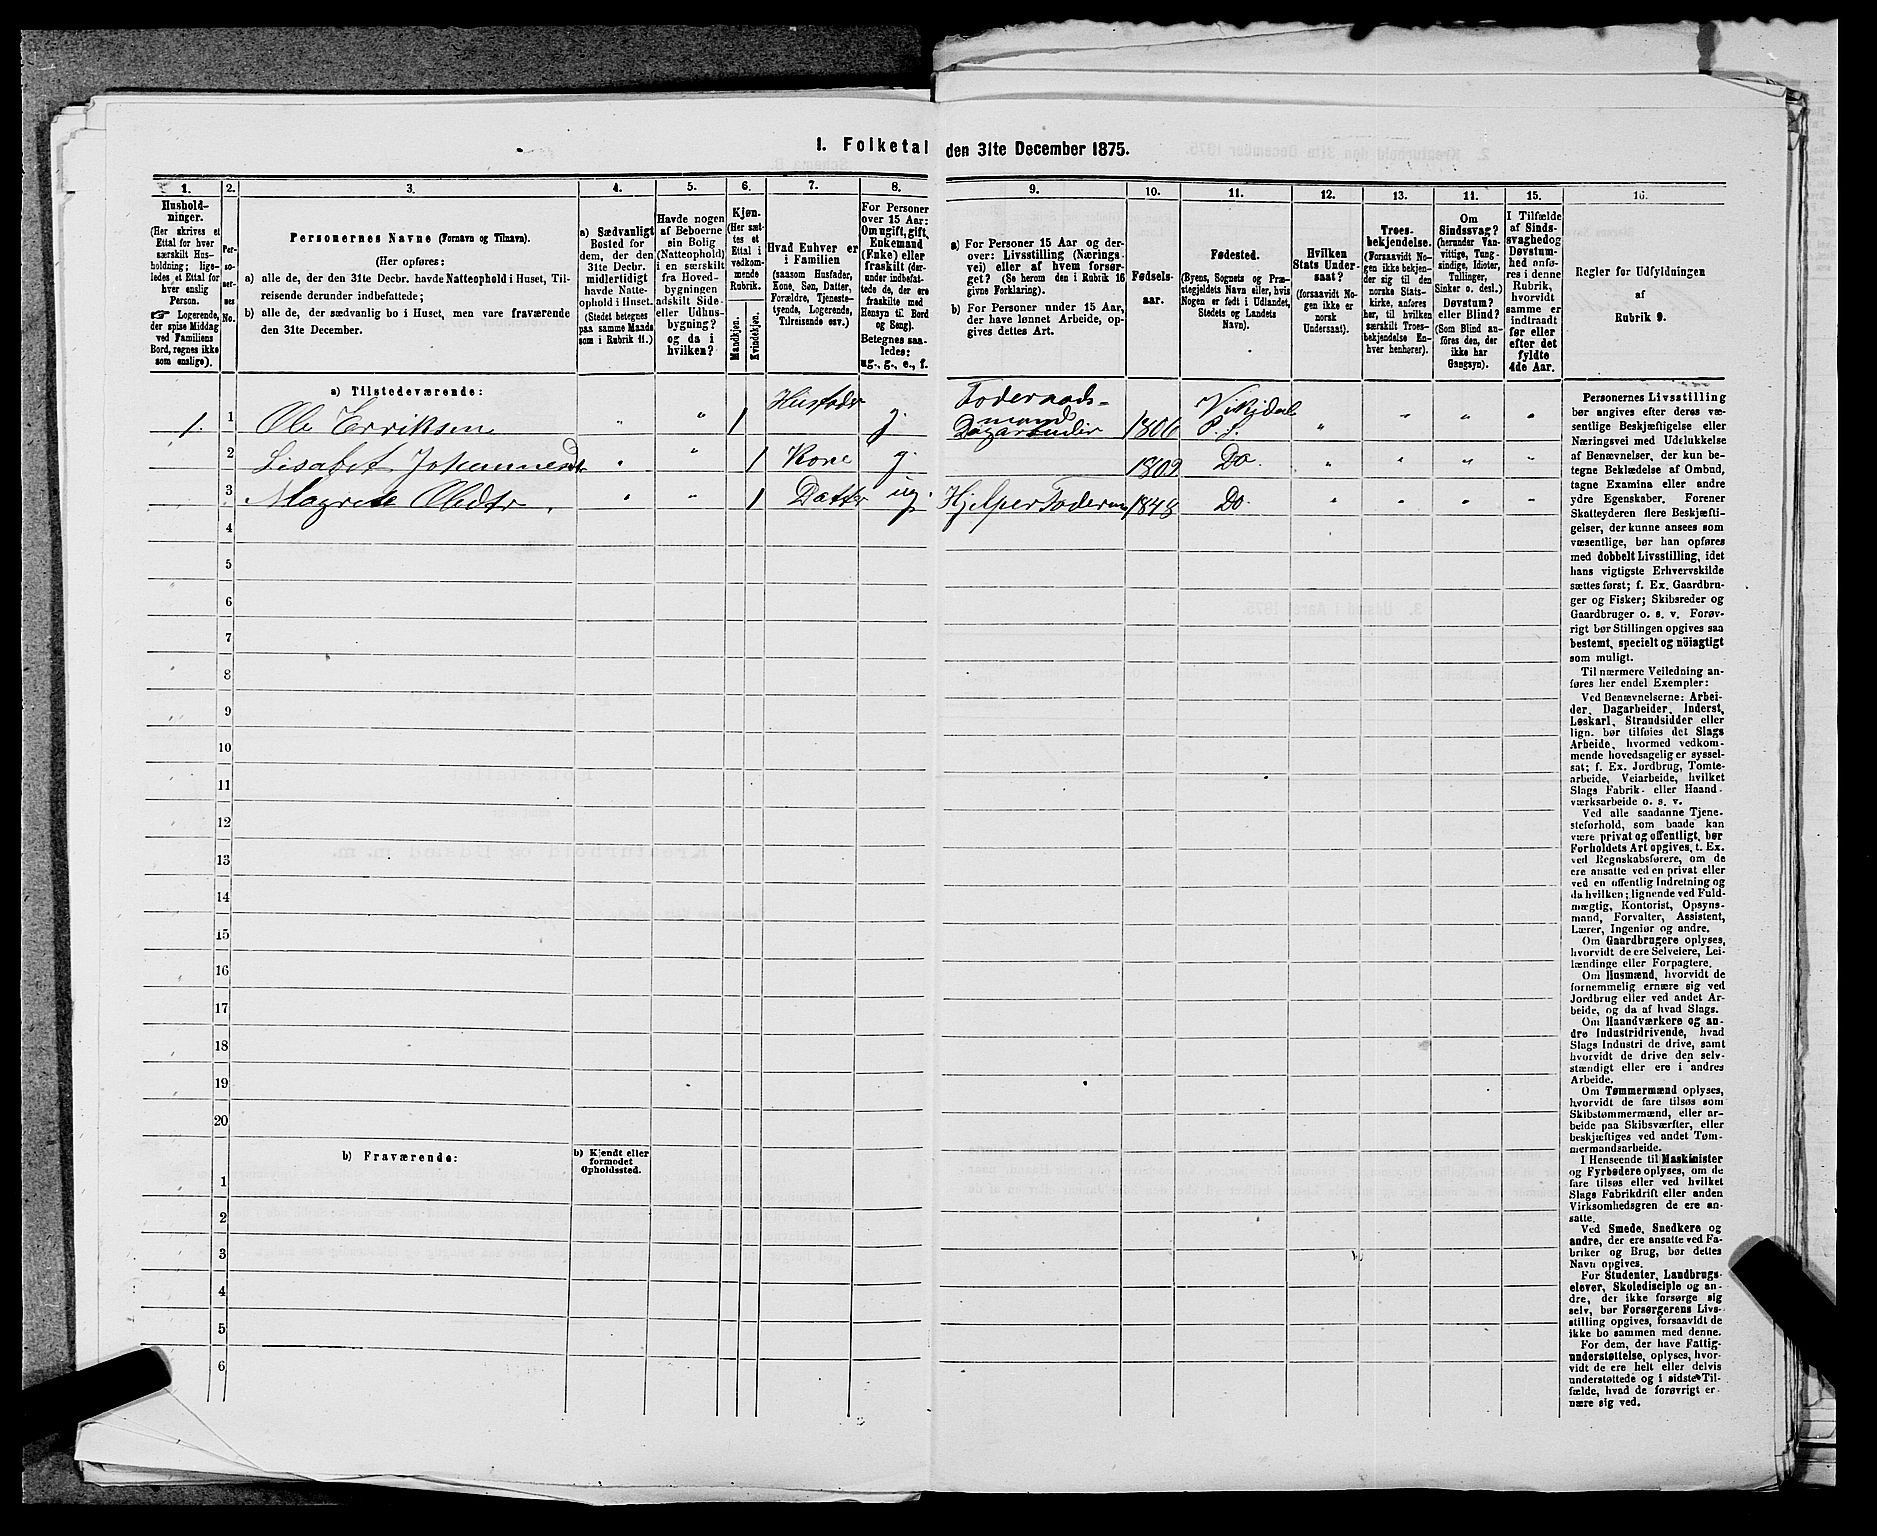 1. Folketal den 31te December 1875.
1. 2. 3. 4. 5. 6. 7. 8. 9. 10. 11. 12. 13. 14. 15. 16.
Hushold-
ninger.
(Her skrives et
Ettal for hver
særskilt Hus-
holdning; lige-
ledes et Ettal for
hver enslig
Person.
☞ Logerende,
der spise Middag
ved Familiens
Bord, regnes ikke
som enslige).
Per-
so-
ner-
nes
No.
Personernes Navne (Fornavn og Tilnavn).
(Her opføres:
a) alle de, der den 31te Decbr. havde Natteophold i Huset, Til-
reisende derunder indbefattede;
b) alle de, der sædvanlig bo i Huset, men vare fraværende
den 31te December.
a) Sædvanligt
Bosted for
dem, der den
31te Decbr.
midlertidigt
havde Natte-
ophold i Huset.
(Stedet betegnes
paa samme Maade
som i Rubrik 11.)
Havde nogen
af Beboerne
sin Bolig
(Natteophold)
i en særskilt
fra Hoved-
bygningen
adskilt Side-
eller Udhus-
bygning?
og da i
hvilken?
Kjøn.
(Her sæt-
tes et
Ettal i
vedkom-
mende
Rubrik.
Mandkjøn.
Kvindekjøn.
Hvad Enhver er
i Familien
(saasom Husfader,
Kone, Søn, Datter,
Forældre, Tjeneste-
tyende, Logerende,
Tilreisende osv.)
For Personer
over 15 Aar:
Om ugift, gift,
Enkemand
(Enke) eller
fraskilt (der-
under indbefat-
tede de, der ere
fraskilte med
Hensyn til Bord
og Seng).
Betegnes saa-
ledes:
ug., g., e., f.
a) For Personer 15 Aar og der-
over: Livsstilling (Nærings-
vei) eller af hvem forsør-
get? (Se herom den i Rubrik 16
givne Forklaring).
b) For Personer under 15 Aar,
der have lønnet Arbeide, op-
gives dettes Art.
Fødsels-
aar.
Fødested.
(Byens, Sognets og Præ-
stegjeldets Navn eller, hvis
Nogen er født i Udlandet,
Stedets og Landets
Navn).
Hvilken
Stats Under-
saat?
(forsaavidt No-
gen ikke er
norsk
Undersaat).
Troes-
bekjendelse.
(Forsaavidt No-
gen ikke bekjen-
der sig til den
norske Stats-
kirke, anføres
her, til hvilken
særskilt Troes-
bekjendelse En-
hver henhører).
Om
Sindssvag?
(herunder Van-
vittige, Tung-
sindige, Idioter,
Tullinger,
Sinker o. desl.)
Døvstum?
eller Blind?
(Som Blind an-
føres den, der
ikke har
Gangsyn).
I Tilfælde
af Sinds-
svaghed og
Døvstum-
hed anfø-
res i denne
Rubrik,
hvorvidt
samme er
indtraadt
før eller
efter det
fyldte
4de Aar.
Regler for Udfyldningen
af
Rubrik 9.
a) Tilstedeværende:
1. 1 Ole Erriksen " " 1 Husfader g. Foderaads-
mand
Dagarbeider 1806 Vikedal
P. S. " " " "
2 Lisabet Johannesdt " " 1 Kone g. 1809 Do. " " " "
3 Magrete Olsdtr " " 1 Datter ug. Hjelper Foderaa 1848 Do. " " " "
4
5
6
7
8
9
10
11
12
13
14
15
16
17
18
19
20
b) Fraværende:
b) Kjendt eller
formodet
Opholdssted.
1
2
3
4
5
6
Personernes Livsstilling
bør angives efter deres væ-
sentlige Beskjæftigelse eller
Næringsvei med Udelukkelse
af Benævnelser, der kun be-
tegne Beklædelse af Ombud,
tagne Examina eller andre
ydre Egenskaber. Forener
Skatteyderen flere Beskjæfti-
gelser, der kunne ansees som
væsentlige, bør han opføres
med dobbelt Livsstilling, idet
hans vigtigste Erhvervskilde
sættes først; f. Ex. Gaardbru-
ger og Fisker; Skibsreder og
Gaardbruger o. s. v. Forøv-
rigt bør Stillingen opgives saa
bestemt, specielt og nöiagtigt
som muligt.
Til nærmere Veiledning an-
føres her endel Exempler:
Ved Benævnelserne: Arbei-
der, Dagarbeider, Inderst,
Løskarl, Strandsidder eller
lign. bør tilføies det Slags
Arbeide, hvormed vedkom-
mende hovedsagelig er syssel-
sat; f. Ex. Jordbrug, Tomte-
arbeide, Veiarbeide, hvilket
Slags Fabrik- eller Haand-
værksarbeide o. s. v.
Ved alle saadanne Tjene-
steforhold, som baade kan
være privat og offentligt, bør
Forholdets Art opgives, t. Ex.
ved Regnskabsførere, om de
ere ansatte ved en privat eller
ved en offentlig Indretning og
da hvilken; lignende ved Fuld-
mægtig, Kontorist, Opsyns-
mand, Forvalter, Assistent,
Lærer, Ingeniør og andre.
Om Gaardbrugere oplyses,
hvorvidt de ere Selveiere, Lei-
lændinge eller Forpagtere.
Om Husmænd, hvorvidt de
fornemmelig ernære sig ved
Jordbrug eller ved andet Ar-
beide, og da af hvad Slags.
Om Haandværkere og an-
dre Industridrivende, hvad
Slags Industri de drive, samt
hvorvidt de drive den selv-
stændigt eller ere i andres
Arbeide.
Om Tømmermænd oplyses,
hvorvidt de fare tilsøs som
Skibstømmermænd, eller ar-
beide paa Skibsværfter, eller
beskjæftiges ved andet Tøm-
mermandsarbeide.
I Henseende til Maskinister
og Fyrbødere oplyses, om de
fare tilsøs eller ved hvilket
Slags Fabrikdrift eller anden
Virksomhedsgren de ere an-
satte.
Ved Smede, Snedkere og
andre, der ere ansatte ved Fa-
briker og Brug, bør dettes
Navn opgives.
For Studenter, Landbrugs-
elever, Skoledisciple og an-
dre, der ikke forsørge sig
selv, bør Forsørgerens Livs-
stilling opgives, forsaavidt de
ikke bo sammen med denne.
For dem, der have Fattig-
understøttelse, oplyses, hvor-
vidt de ere helt eller delvis
understøttede og i sidste Til-
fælde, hvad de forøvrigt er-
nære sig ved.